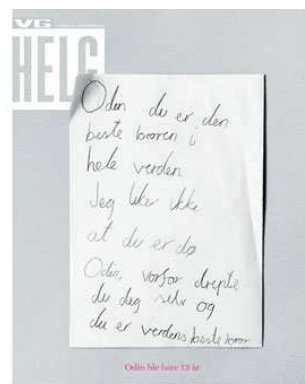 VG
HELG
Odin du er den
beste broren i
hele verden
Jeg liker ikke
at du er dø
Odin, vorfor drepte
du deg selv og
du er verdens beste bror
Odin ble bare 13 år